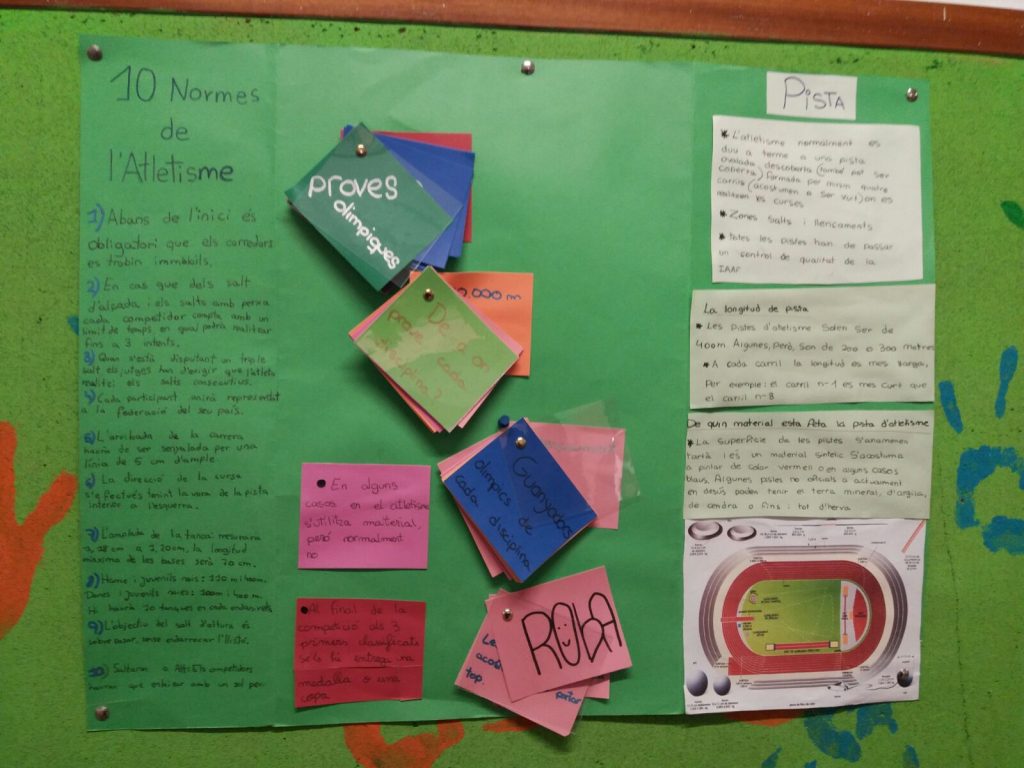 10 Normes
de
l'Atletisme
1) Abans de l'inici és
obligatori que els corredors
es trobin immòbils.
2) En cas que dels salt
d'alçada i els salts amb perxa
cada competidor compta amb un
limit de temps en qual podrà realitzar
fins a 3 intents.
3) Quan s'està disputant un triple
salt els jutges han d'exigir que l'atleta
realitzi els salts consecutius.
4) Cada participant anirà representat
a la federació del seu país.
L'arribada de la carrera
haurà de ser senyalada per una
línia de 5 cm d'ample.
La direcció de la cursa
s'efectués tenint la vora de la pista
interior a l'esquerra.
7) L'amplada de la tanca mesurarà
la longitud
màxima de les bases serà 70 cm.
8) Homes i juvenils nois: 110 m i 400m.
Dones i juvenils noies: 100m i 400 m.
Hi haurà 10 tanques en cada
9) L'objectiu del salt d'altura és
sobre passar, sense enderrocar l'llistó.
10) Saltaran Els competidors
hauran que enlairar amb un sol peu.
proves
olimpiques
0.000 m
De d on
prove cada
disciplina?
Guanyadors
olimpics de
cada disciplina
En alguns
casos en el atletisme
s'utilitza material,
però normalment
no
Al final de la
competició als 3
primers classificats
se'ls hi entrega una
medalla o una
copa
ROBA
Le
acos
top.
portar
PISTA
* L'atletisme normalment es
duu a terme a una pista
ovalada descoberta (també pot ser
coberta) formada per minim quatre
carrils (acostumen a ser vuit) on es
realitzen les curses
* Zones salts i llençaments
* totes les pistes han de passar
un control de qualitat de la
IAAF
La longitud de pista
* Les Pistes d'atletisme Solen Ser de
400m Algunes, Però, Son de 200 o 300 metres
* A cada carril la longitud es mes llarga,
Per exemple: el carril n-1 es mes curt que
el carril n-8
De quin material esta feta la pista d'atletisme
* La superficie de les pistes S'anomenen
tartà i és un material sintetic S'acostuma
a pintar de color vermell o en alguns casos
blaus. Algunes pistes no oficials o actualment
en desús poden tenir el terra mineral, d'argila,
de cendra o fins i tot d'herva